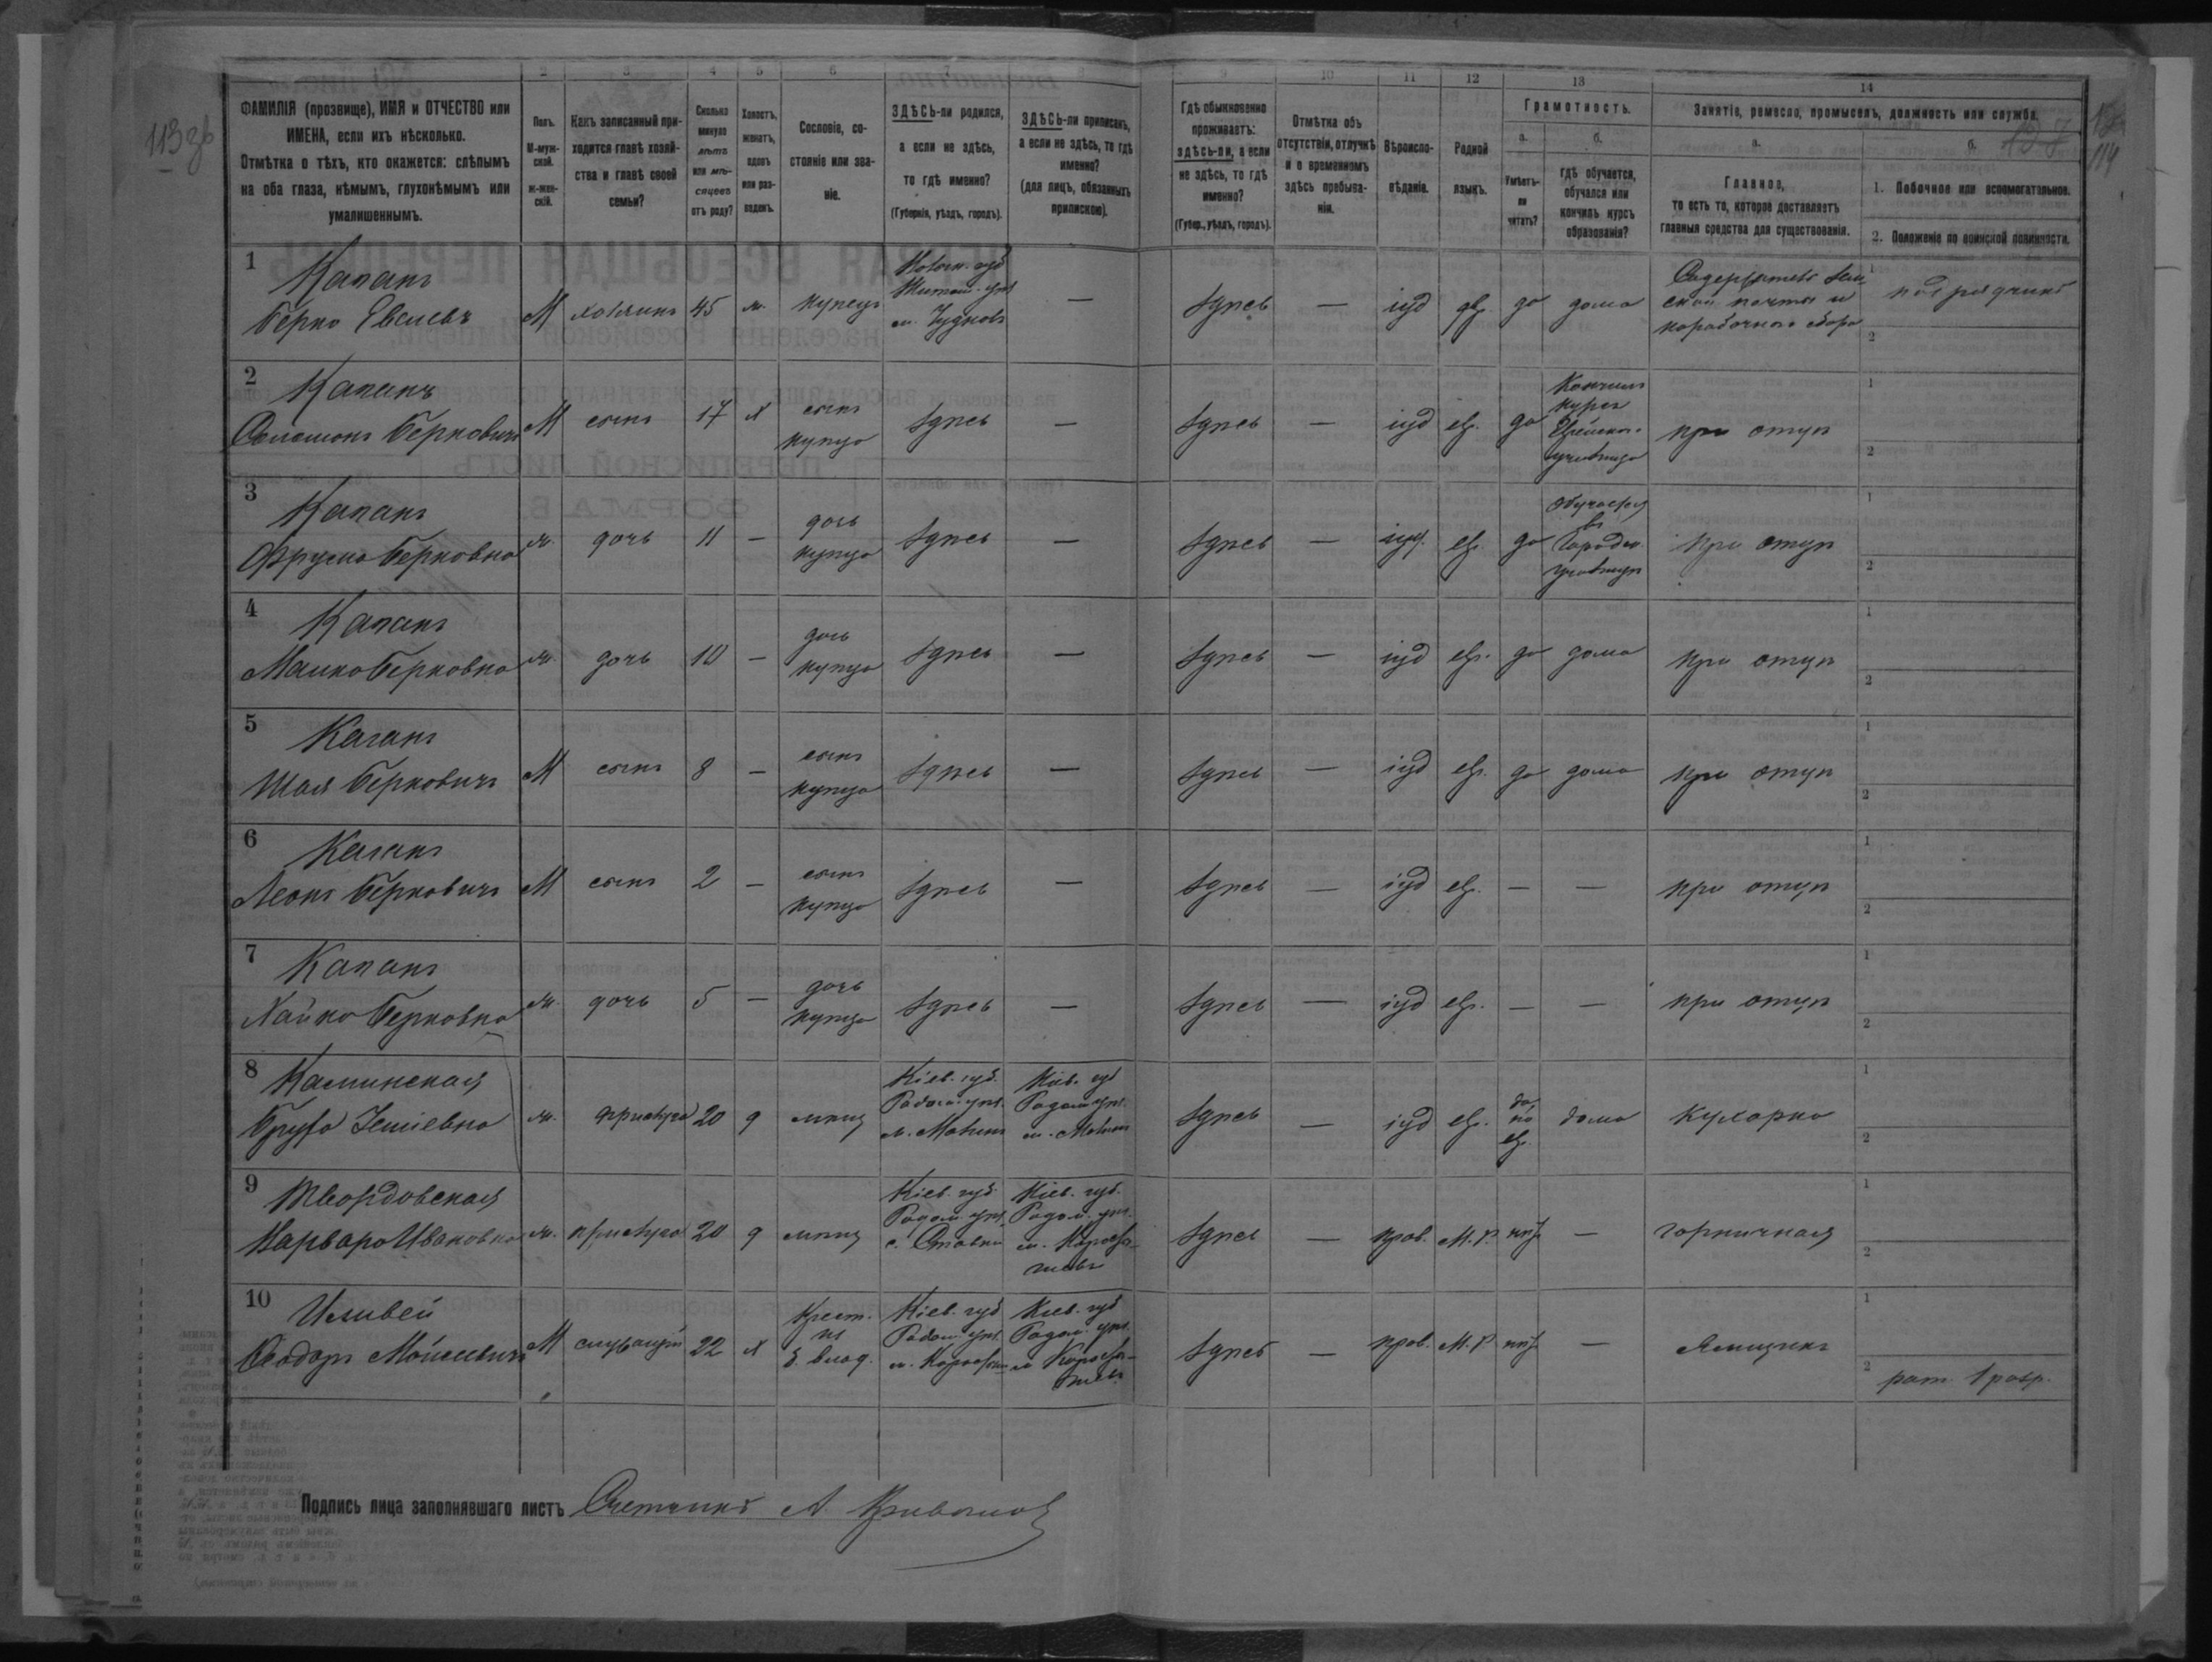 113 об
114
2 3 4 5 6 7 9 10 11 12 13 14
ФАМИЛІЯ (прозвище), ИМЯ и ОТЧЕСТВО или
ИМЕНА, если ихъ нѣсколько.
Отмѣтка о тѣхъ, кто окажется: слѣпымъ
на оба глаза, нѣмымъ, глухонѣмымъ или
умалишеннымъ.
Полъ.
М-муж-
ской.
ж-жен-
скій.
Какъ записанный при-
ходится главѣ хозяй-
ства и главѣ своей
семьи?
Сколько
минуло
лѣтъ
или мѣ-
сяцевъ
отъ роду?
Холостъ,
женатъ,
вдовъ
или раз-
веденъ.
Сословіе, со-
стояніе или зва-
ніе.
ЗДѢСЬ-ли родился,
а если не здѣсь,
то гдѣ именно?
(Губернія, уѣздъ, городъ).
ЗДѢСЬ-ли приписанъ,
а если не здѣсь, то гдѣ
именно?
(для лицъ, обязанныхъ
припискою).
Гдѣ обыкновенно
проживаетъ:
здѣсь-ли, а если
не здѣсь, то гдѣ
именно?
(Губер., уѣздъ, городъ).
Отмѣтка объ
отсутствіи, отлучкѣ
и о временномъ
здѣсь пребыва-
ніи.
Вѣроиспо-
вѣданіе.
Родной
языкъ.
Грамотность.
а.
Умѣетъ-
ли
читать?
б.
гдѣ обучается,
обучался или
кончилъ курсъ
образованія?
Занятіе, ремесло, промыселъ, должность или служба.
а.
Главное,
то есть то, которое доставляетъ
главныя средства для существованія.
б.
1. Побочное или вспомогательное.
2. Положеніе по воинской повинности.
1
Каганъ
Берко Евсіевъ
М хозяинъ 45 ж. купецъ
Волын. губ
Житом. уѣз
м. Чудновъ
—
здѣсь — іуд евр. да дома
Содержатель зем
ской почты и
коробочного сбора
1 подрядчикъ
2
2
Каганъ
Соломонъ Берковичъ
М сынъ 17 х
сынъ
купца
здѣсь — здѣсь — іуд евр. да
Кончилъ
курсъ
Еврейскаго
училища
при отцѣ
1
2
3
Каганъ
Фрума Берковна
ж. дочь 11 —
дочь
купца
здѣсь — здѣсь — іуд. евр. да
обучается
въ
Городск.
училищѣ
при отцѣ
1
2
4
Каганъ
Малка Берковна
ж. дочь 10 —
дочь
купца
здѣсь — здѣсь — іуд евр. да дома при отцѣ
1
2
5
Каганъ
Шая Берковичъ
М сынъ 8 —
сынъ
купца
здѣсь — здѣсь — іуд евр. да дома при отцѣ
1
2
6
Каганъ
Леонъ Берковичъ
М сынъ 2 —
сынъ
купца
здѣсь — здѣсь — іуд евр. — — при отцѣ
1
2
7
Каганъ
Хайка Берковна
ж. дочь 5 —
дочь
купца
здѣсь — здѣсь — іуд евр. — — при отцѣ
1
2
8
Каминская
ж. прислуга 20 д мѣщ
Кіев. губ.
Радом. уѣз.
м.
Кіев. губ
Радом. уѣз.
м.
здѣсь — іуд евр.
да
по
евр.
дома кухарка
1
2
9
Твордовская
Варвара Ивановна
ж. прислуга 20 д мѣщ
Кіев. губ.
Радом. уѣз.
с. Ставки
Кіев. губ.
Радом. уѣз.
м. Коросты-
шевъ
здѣсь — прав. М.Р. нѣтъ — горничная
1
2
10
Федоръ Мойсеевичъ
М служащій 22 х
Крест.
изъ
б. влад.
Кіев. губ
Радом. уѣз.
м. Коростыш
Кіев. губ
Радом. уѣз.
м Коросты-
шевъ
здѣсь — прав. М.Р нѣтъ — Ямщикъ
1
2 рат. 1 разр.
Подпись лица заполнявшаго листъ Счетчикъ А.